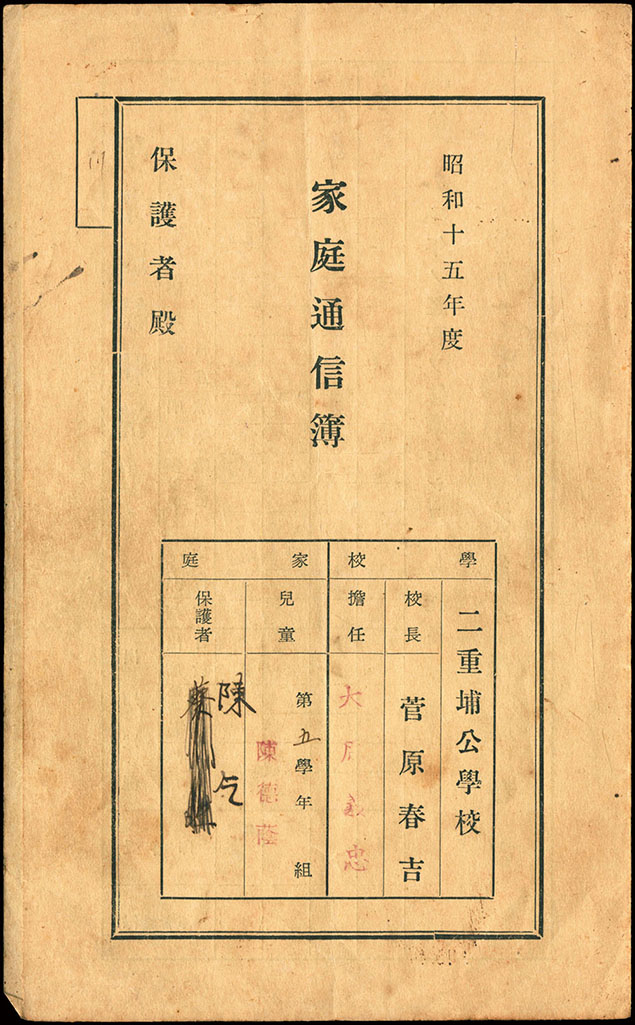 昭和十五年度
家庭通信簿
保護者殿
學校
二重埔公學校
校長
菅原春吉
擔任
大月義忠
家庭
兒童
第五學年 組
陳
保護者
陳